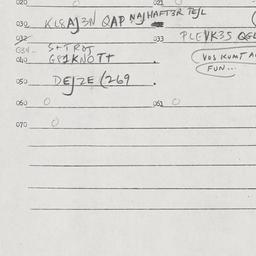 020 021
030 KLSAJ3N QAP NAJHAFT3R TEJL
032 033 PLEVK3S
034 S+TROT
040 GP1KNOTT
VOS KUMT A
FUN...
050 DEJZE (269
060 061
070